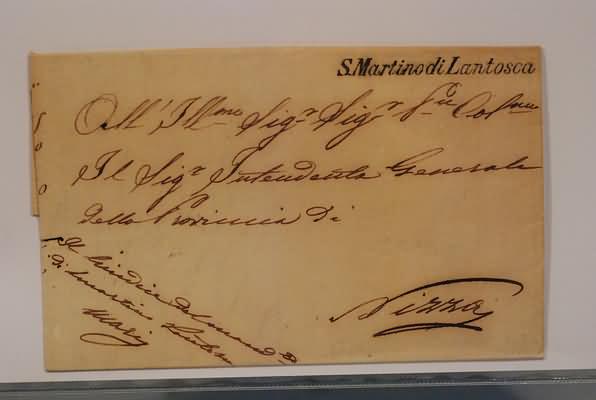 S. Martino di Lantosca
All' Ill.mo Sig.r Sig.r P.ne Col.mo
Il Sig.r Intendente Generale
della Provincia Di
Nizza
Il Giudice del mand.o
di S. Martino Lantosca